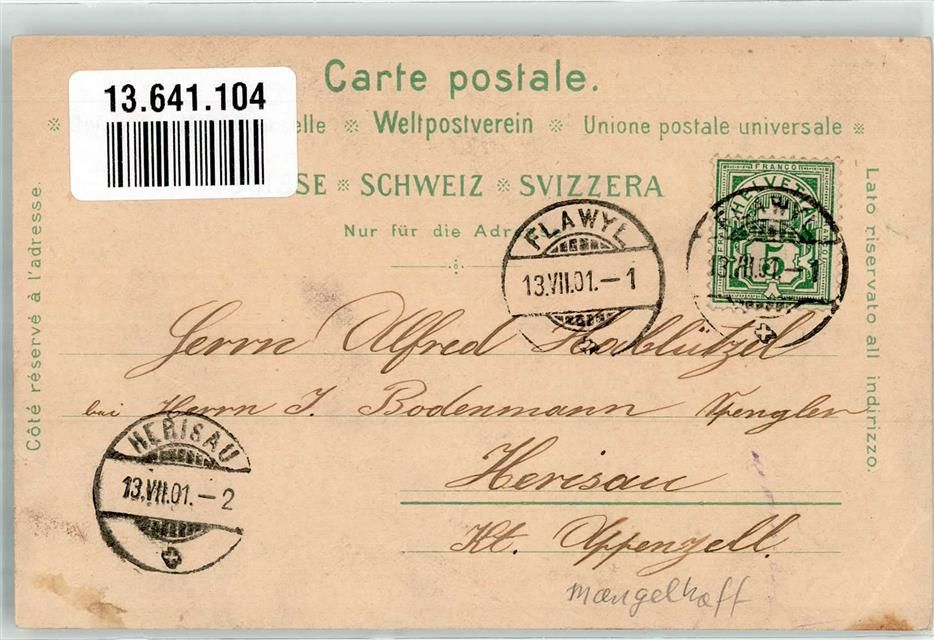 13.641.104
Carte postale.
selle ※ Weltpostverein ※ Unione postale universale ※
SE ※ SCHWEIZ ※ SVIZZERA
Nur für die Adre
Côté réservé à l'adresse.
Lato riservato all indirizzo.
FRANCO
HELVETIA
5
FLAWYL
13.VII.01.–1
FLAWYL
13.VII.01.–1
Herrn Alfred Hablützel
bei Herrn J. Bodenmann Spengler
Herisau
Kt. Appenzell.
HERISAU
13.VII.01.–2
mangelhaft